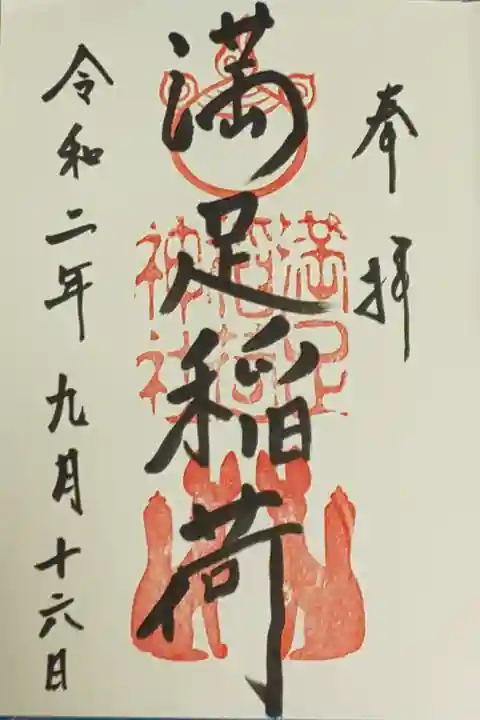 奉拝
満足稲荷
満足
稲荷
神社
令和二年九月十六日